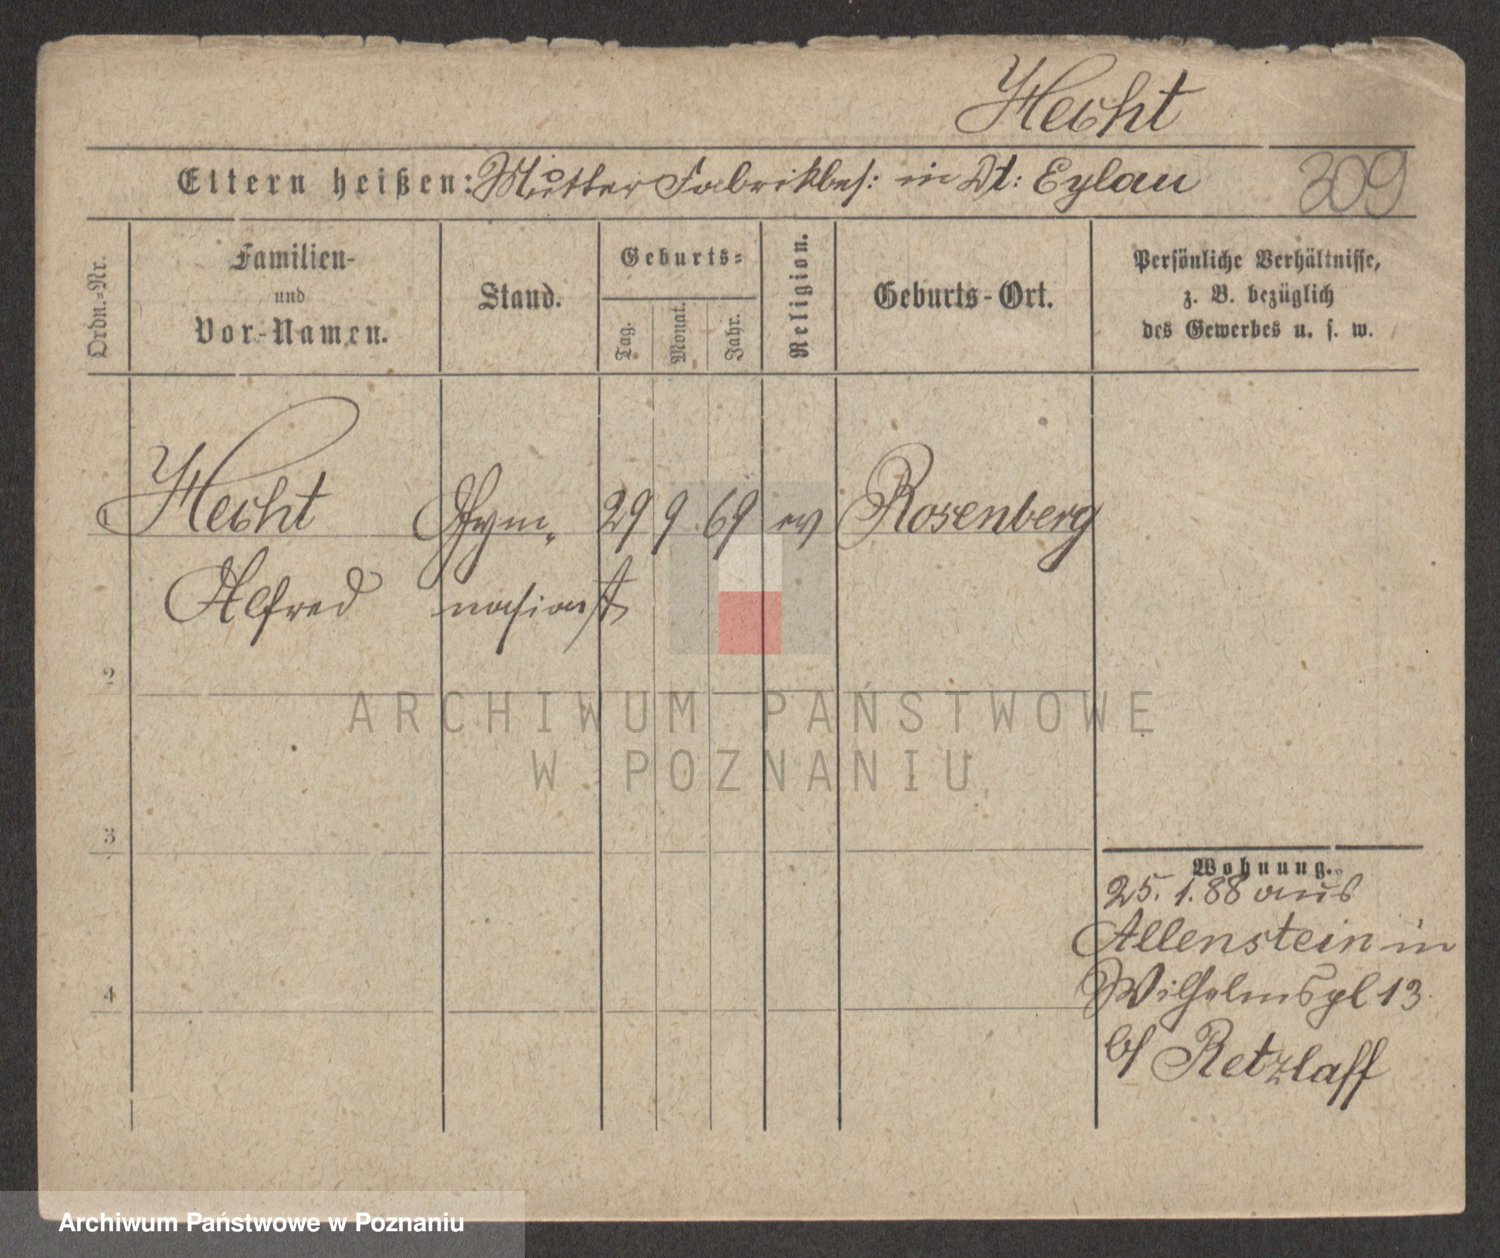 Hecht
Eltern heißen: Mutter Fabrikbes: in Dt: Eylau
309
Ordn.-Nr.
Familien-
und
Vor-Namen.
Stand.
Geburts-
Tag.
Monat.
Jahr.
Religion.
Geburts-Ort.
Persönliche Verhältnisse,
z. B. bezüglich
des Gewerbes u. s. w.
Hecht Gym- 29 9 69 ev Rosenberg
Alfred nasiast
2
ARCHIWUM PAŃSTWOWE
W POZNANIU
3
Wohnung.
25. 1. 88 aus
Allenstein in
4
Wilhelmspl 13.
b/ Retzlaff
Archiwum Państwowe w Poznaniu